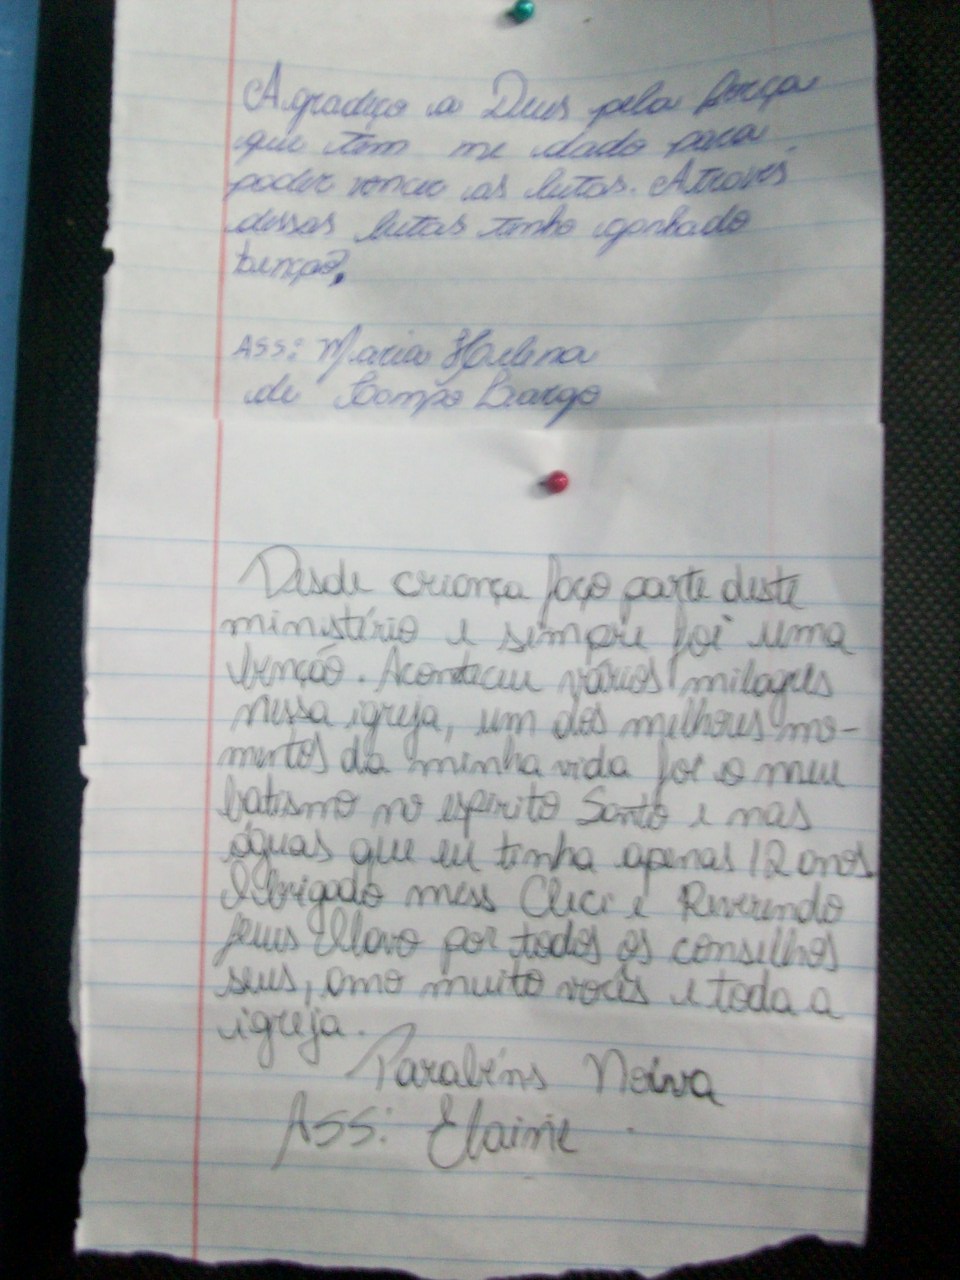 Agradeço a Deus pela força
que tem me dado para
poder vencer as lutas. Através
dessas lutas tenho ganhado
benção.
Ass: Maria Helena
de Campo Largo
Desde criança faço parte deste
ministério e sempre foi uma
benção. Aconteceu vários milagres
nessa igreja, um dos melhores mo-
mentos da minha vida foi o meu
batismo no espirito Santo e nas
águas que eu tinha apenas 12 anos
Obrigado miss Cleci e Reverendo
Olavo por todos os conselhos
seus, amo muito vocês e toda a
igreja.
Parabéns Noiva
Ass: Elaine